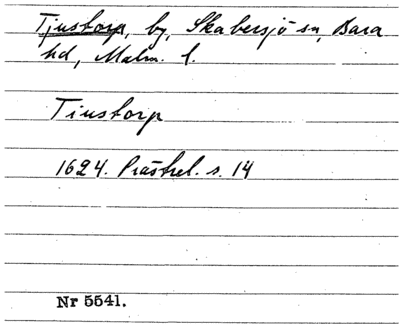 Tjustorp, by, Skabersjö sn, Bara
hd, Malm. l.
Tiustorp
1624. Prästrel. s. 14
Nr 5541.